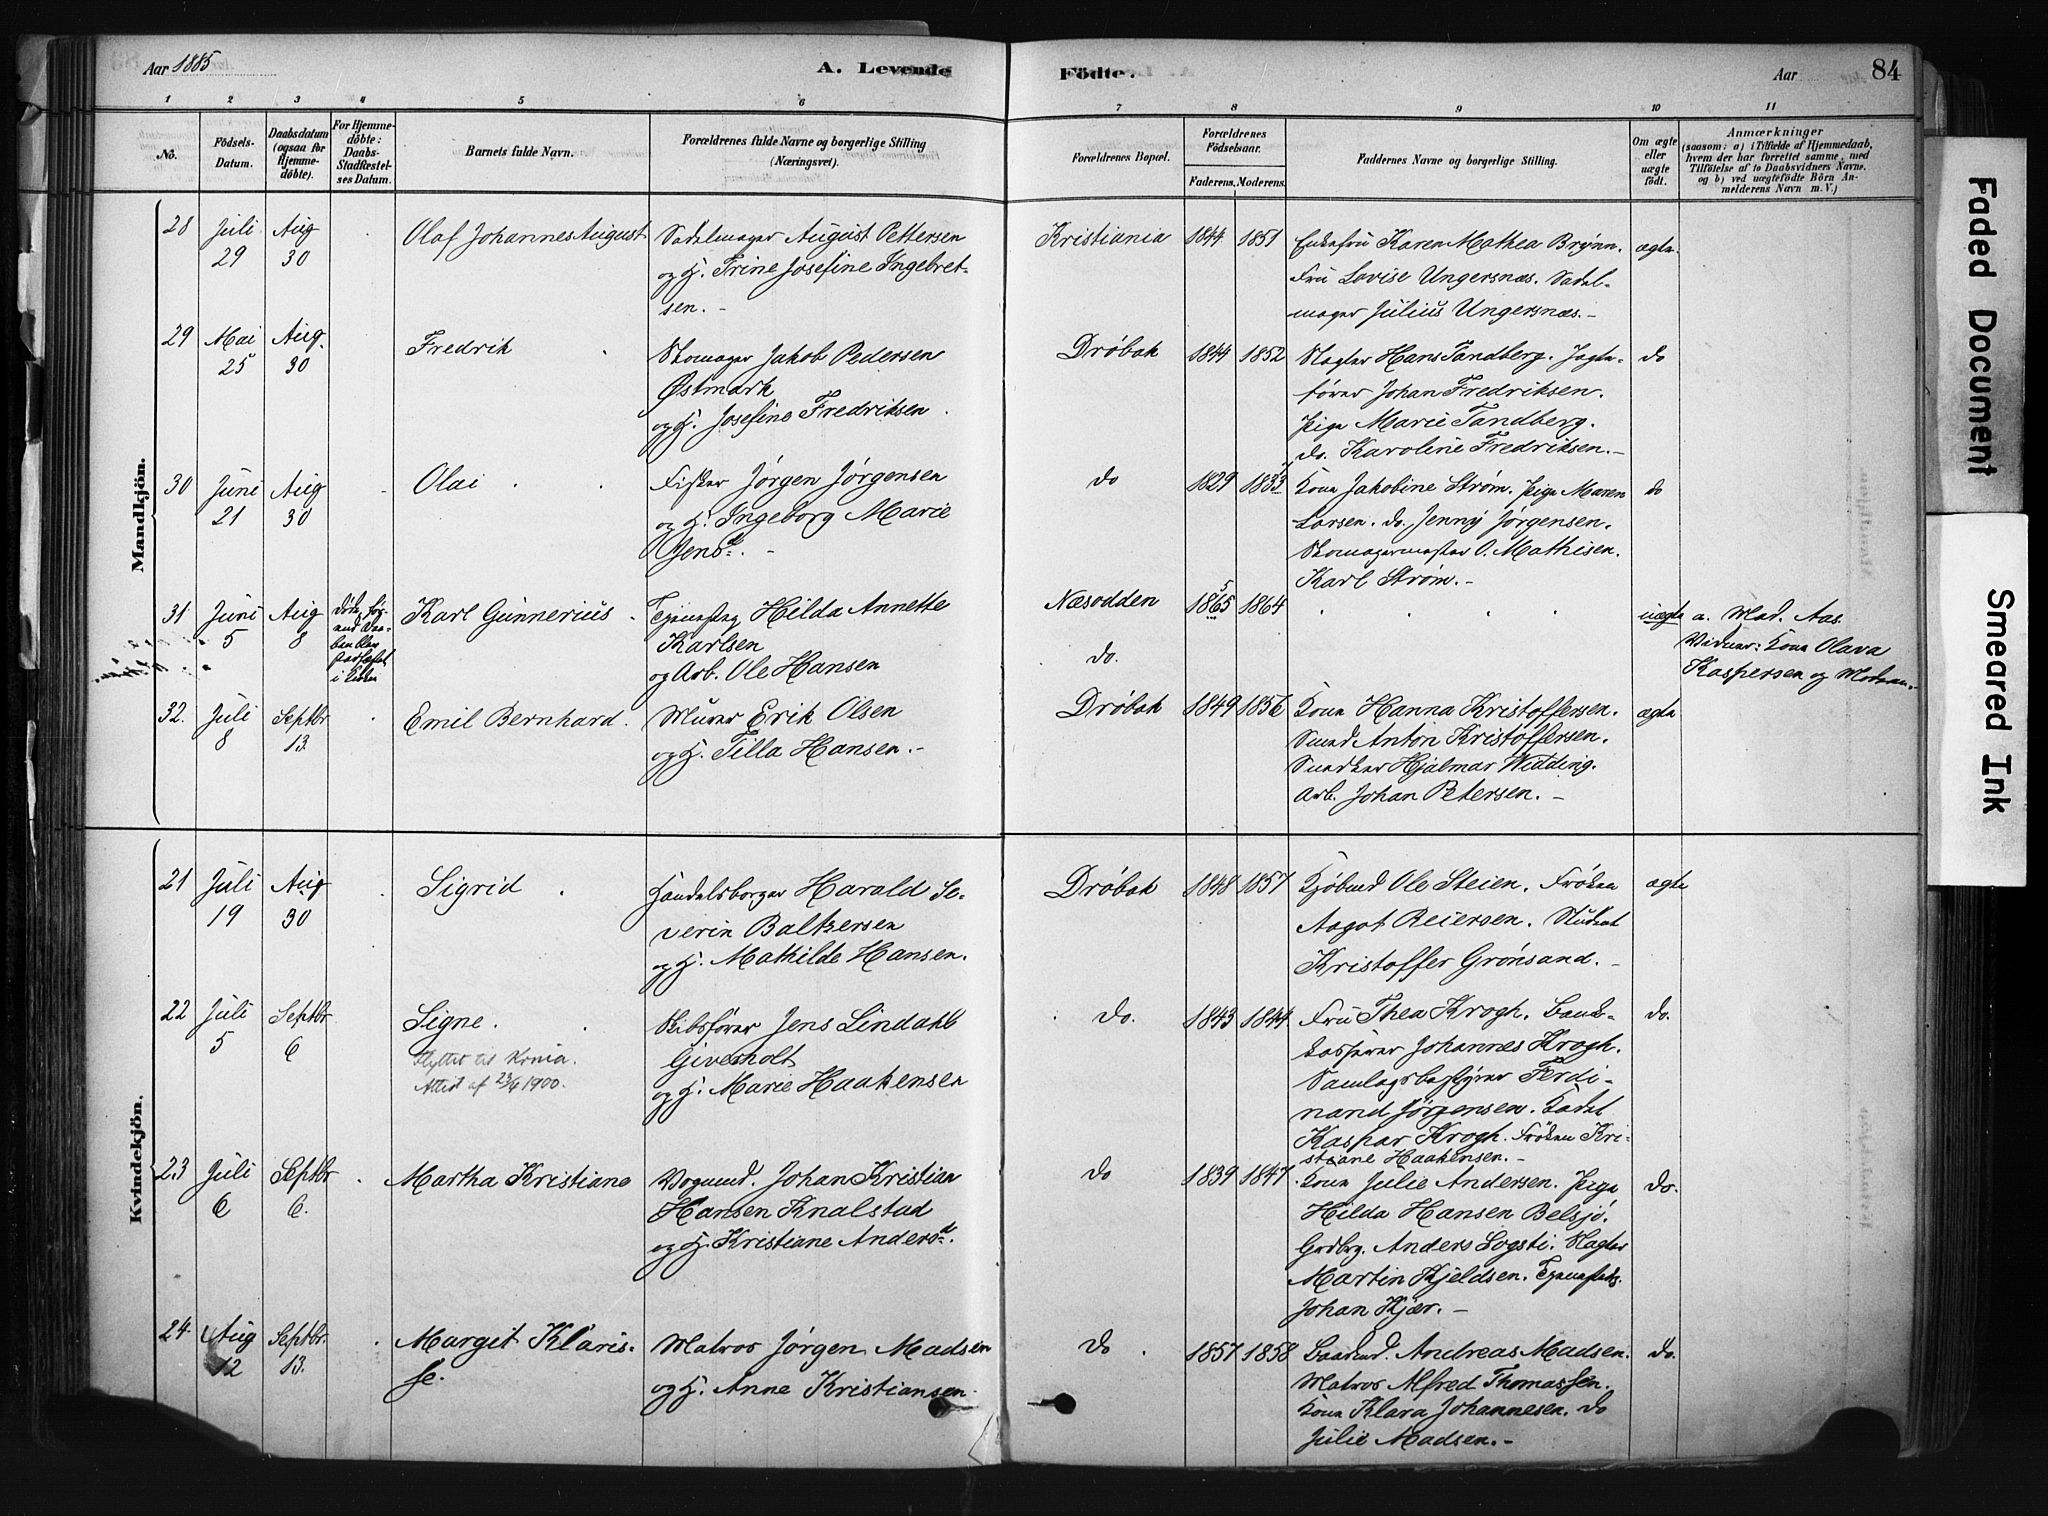 Aar 1885
A. Levende
Födte.
Aar
84
1 2 3 4 5 6 7 8 9 10 11
No.
Födsels-
Datum.
Daabsdatum
(ogsaa for
Hjemme-
döbte).
For Hjemme-
döbte:
Daabs-
Stadfæstel-
ses Datum.
Barnets fulde Navn.
Forældrenes fulde Navne og borgerlige Stilling
(Næringsvei).
Forældrenes Bopæl.
Forældrenes
Födselsaar.
Faderens. Moderens.
Faddernes Navne og borgerlige Stilling.
Om ægte
eller
uægte
født.
Anmærkninger
(saasom: a) i Tilfælde af Hjemmedaab,
hvem der har forrettet samme, med
Tilföielse af to Daabsvidners Navne.
og b) ved uægtefödte Börn An-
melderens Navn m. V.)
Mandkjön.
28 Juli 29 Aug 30 Olaf Johannes August
Sadelmager August Pettersen
og H. Trine Josefine Ingebret-
sen.-
Kristiania 1844 1851
Enkefru Karen Mathea Brynn.
Fru Lovise Ungersnæs. Sadel-
mager Julius Ungersnæs.-
ægte.
29 Mai 25 Aug. 30 Fredrik
Skomager Jakob Pedersen
Østmark
og H. Josefine Fredriksen
Drøbak 1844 1852
Slagter Hans Tandberg. Jagte-
fører Johan Fredriksen.
Pige Marie Tandberg.
do. Karoline Fredriksen.-
do
30 Juni 21 Aug 30 Olai
Fisker Jørgen Jørgensen
og H. Ingeborg Marie
Jensd.-
do 1829 1833
Kone Jakobine Strøm. Pige Maren
Larsen. do. Jenny Jørgensen.
Skomagermester O. Mathisen.
Karl Strøm.-
do
31 Juni 5 Aug 8
Karl Gunnerius
Tjenestep Hilda Annette
Karlsen
og Arb. Ole Hansen
Næsodden
do.
1865 1864
uægte
a. Mad. Aas.
Vidner: Kone Olava
Kaspersen og Modren.
32. Juli 8 Septbr 13. Emil Bernhard.
Murer Erik Olsen
og H. Tilla Hansen.-
Drøbak 1849 1856
Kone Hanna Kristoffersen.
Smed Anton Kristoffersen.
Snedker Hjalmar Widding.
Arb. Johan Petersen.-
ægte
Kvindekjön.
21 Juli 19 Aug 30 Sigrid
Handelsborger Harald Se-
verin Baltzersen
og H. Mathilde Hansen.
Drøbak 1848 1857
Kjøbmd Ole Steien. Frøken
Aagot Reiersen. Student
Kristoffer Grønsand.-
ægte
22 Juli 5 Septbr 6 Signe.
Flyttet til Krnia.
Attest af 23/4 1900.
Skibsfører Jens Lindahl
Giverholt
og H. Marie Haakensen
do. 1843 1844
Fru Thea Krogh. Bank-
kasserer Johannes Krogh.
Samlagsbestyrer Ferdi-
nand Jørgensen. Kadet
Kaspar Krogh. Frøken Kri-
stiane Haakensen.-
do.
23 Juli 6 Septbr 6. Martha Kristiane
Vognmd. Johan Kristian
Hansen Knalstad
og H. Kristiane Andersd.
do 1839 1847
Kone Julie Andersen. Pige
Hilda Hansen Belsjø.
Grdbrg. Anders Sogsti. Slagter
Martin Kjeldsen. Tjenestedr.
Johan Kjær.-
do.
24 Aug 12 Septbr. 13. Margit Klaris-
se.
Matros Jørgen Madsen
og H. Anne Kristiansen
do 1857 1858
Baadmd. Andreas Madsen.
Matros Alfred Thomassen.
Kone Klara Johannesen. do
Julie Madsen.-
do.
Faded Document
Smeared Ink